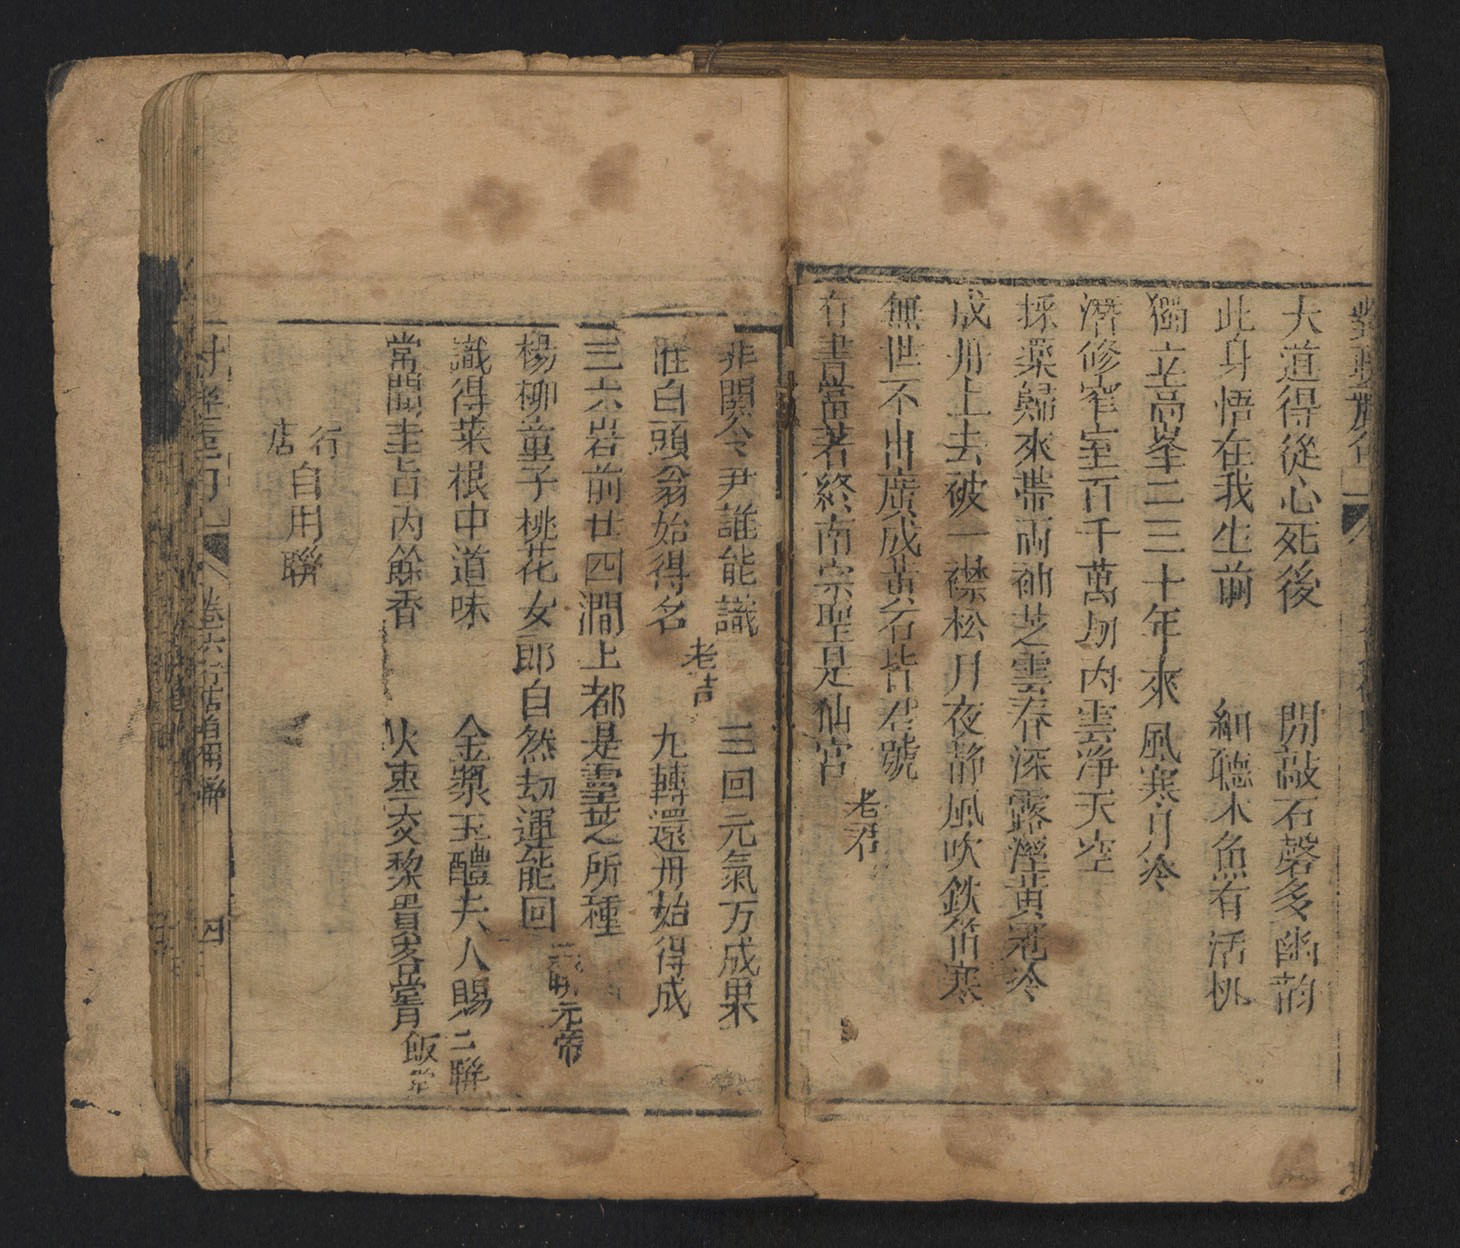 大道得從心死後　閒敲石磬多幽韵
此身悟在我生前　細聽木魚有活机
獨立高峯二三十年來風寒月冷
潛修窄室百千萬刼內雲淨天空
採藥歸來帶雨袖芝雲春深露溼黃冠冷
成丹上去破一襟松月夜靜風吹鉄笛寒
無世不出廣成黃老皆君號
有書當著終南宗聖是仙宮　老君
非關令尹誰能識　三回元氣万成果
訨白頭翁始得名　老吉　九轉還丹始得成
三十六岩前廿四澗上都是靈芝所種
楊柳童子桃花女郎自然劫運能回　元帝
識得菜根中道味　金漿玉醴夫人賜　二聯
常聞圭旨內餘香　火棗交黎貴客嘗　飯堂
行店自用聯
卷六　行店自用聯　四